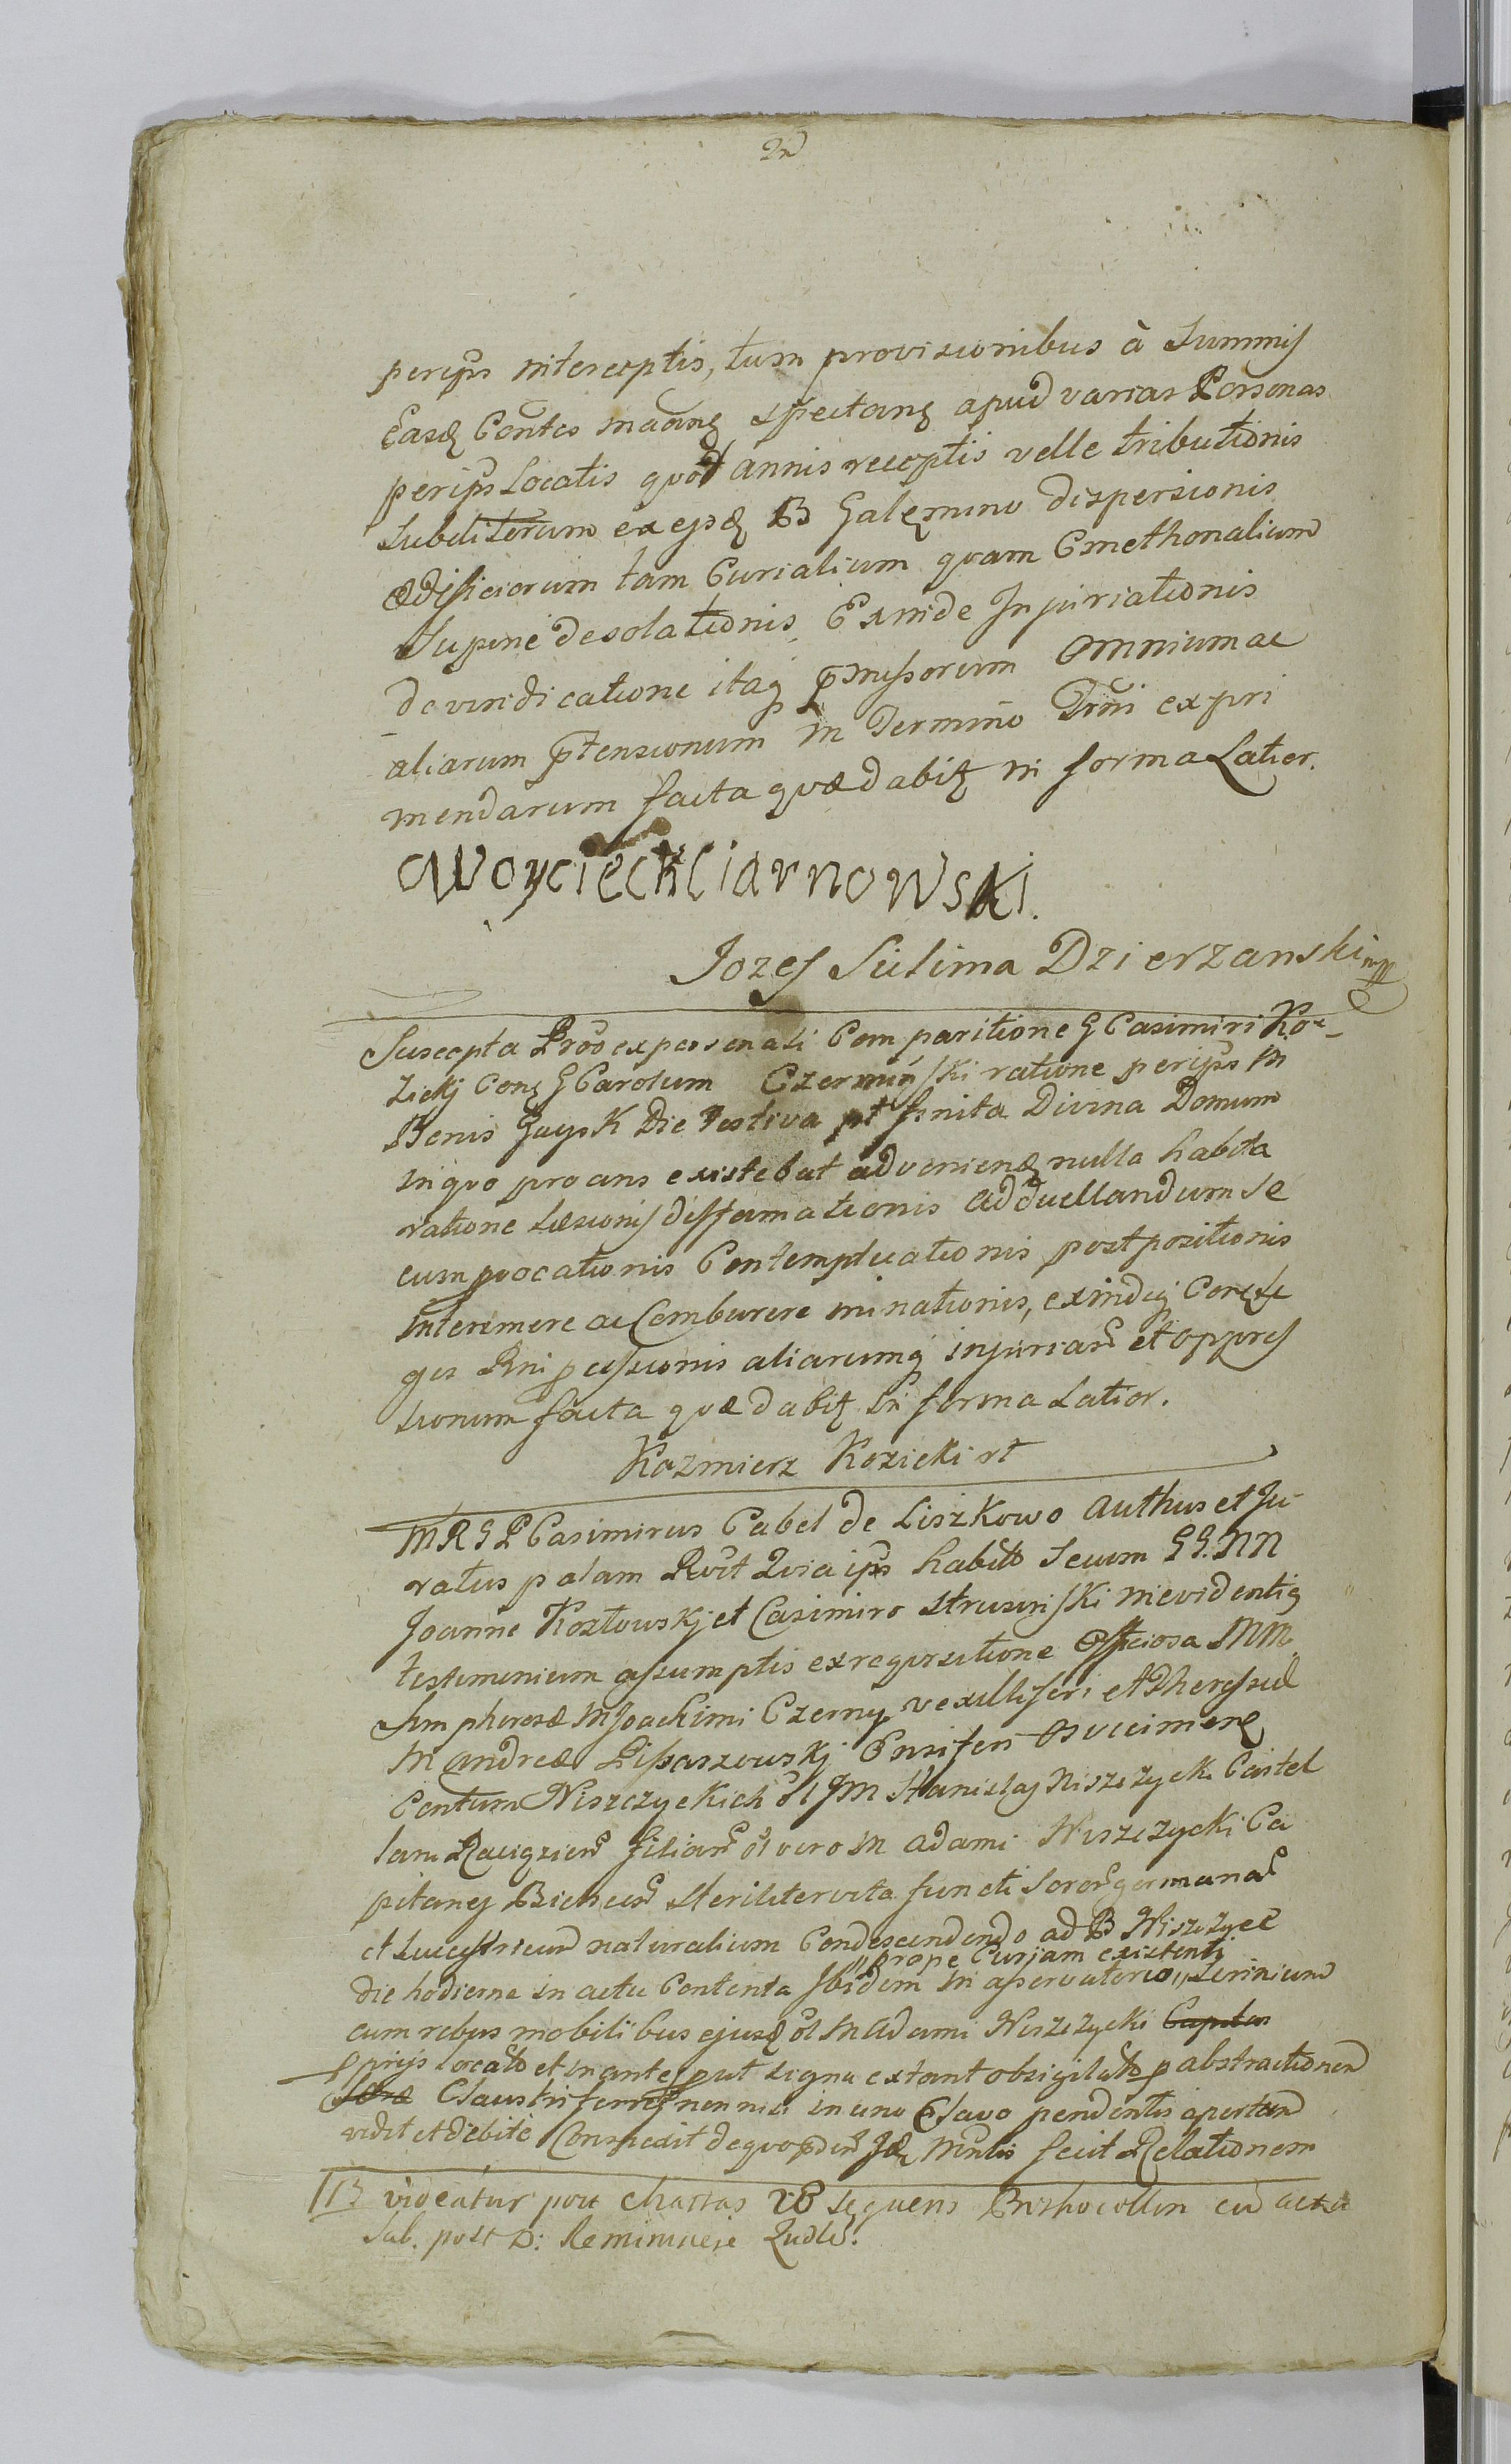 per ips interceptis, tum provisionibus à Summis
Easq Contes madang spectang apud varias Personas
per ips Locatis quod annis receptis velle tributionis
Subditorum ex ejsd B Galęmino dispersionis
ædificiorum tam Curialium quam Cmethonalium
Supinè desolationis Exinde Injuriationis
de vindicatione itaq pmissorum omnium ac
aliarum ptensionum in Termino Tmi expri
mendarum facta quæ dabit in forma Latior.
Woyciech Ciarnowski.
Jozef Sulima Dzierzanski mpp
Suscepta Prõõ ex personali Comparitione G Casimiri Ko-
zickj Conq G Carolum Czermiński ratione per ips in
Benis Guysk Die Festiva pt finita Divina Domum
in quo proans existebat advenienq nulla habita
ratione Læsionis diffamationis ad duellandum se
cum pvocationis Contemptuationis postpositionis
Interimere ac Comburere minationis, exindeq
Rni pcussionis aliarumq injuriar et oppres
sionum facta quæ dabit in forma Latior.
Kazmierz Kozicki rt
MRGP Casimirus Cabel de Liszkowo authus et Ju-
ratus palam Rvit Quia ips habito secum GG. NN
Joanne Kozłowskj et Casimiro Strusinski in evidentiq
testimonium assumptis ex requisitione officiosa MM
Symphorosæ M Joachimi Czerny vexilliferi et Theressiæ
M Andreæ Lissaszowskj Ensiferi Osviecimenq
Contum Niszczyckich ol JM Stanislaj Niszczycki Castel
lani Raciązien filiar ol vero M Adami Niszczycki Ca
pitanej Biechen steriliter vita functi soror germanar
et Successricum naturalium Condescendendo ad B Niszczyce
die hodierna in actu Contenta Ibidem in asservatorio „ prope Curjam existenti „ scrinium
cum rebus mobilibus ejusd ol M Adami Niszczycki Capitan
pprijs locato et in antes put signa extant obsigilato p abstractionem
Seræ Claustri ferrei non nisi in uno Clavo pendentis apertum
vidit et debitè Conspexit de quo pdem Id Mnlis fecit Relationem
NB videatur post chartas 28 sequens Prothocollon cu acta
sub. post D: Reminiscere Qudli.